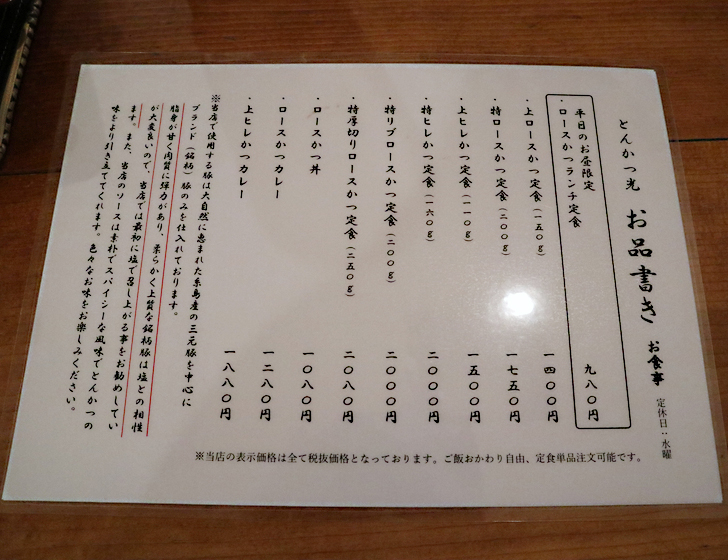 とんかつ光 お品書き お食事
定休日：水曜
平日のお昼限定
・ロースかつランチ定食 九八〇円
・上ロースかつ定食（一五〇g） 一四〇〇円
・特ロースかつ定食（二〇〇g） 一七五〇円
・上ヒレかつ定食（一一〇g） 一五〇〇円
・特ヒレかつ定食（一六〇g） 二〇〇〇円
・特リブロースかつ定食（二〇〇g） 二〇〇〇円
・特厚切りロースかつ定食（二五〇g） 二〇八〇円
・ロースかつ丼 一〇八〇円
・ロースかつカレー 一二八〇円
・上ヒレかつカレー 一八八〇円
※当店で使用する豚は大自然に恵まれた糸島産の三元豚を中心に
ブランド（銘柄）豚のみを仕入れております。
脂身が甘く肉質に弾力があり、柔らかく上質な銘柄豚は塩との相性
が大変良いので、当店では最初に塩で召し上がる事をお勧めしてい
ます。また、当店のソースは素朴でスパイシーな風味でとんかつの
味をより引き立ててくれます。色々なお味をお楽しみください。
※当店の表示価格は全て税抜価格となっております。ご飯おかわり自由、定食単品注文可能です。